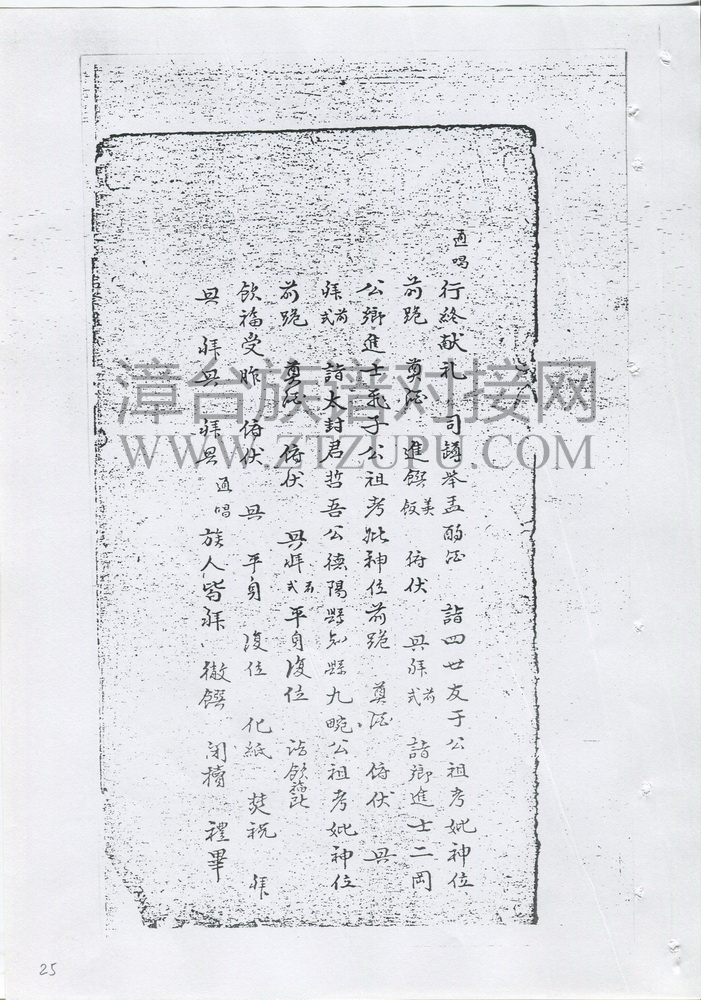 通唱
行終献礼 司罇举盂酌酒 詣四世友于公祖考妣神位
前跪 奠酒 進饌 羹飯 俯伏 興 拜 式前 詣鄉進士二岡
公鄉進士 于公祖考妣神位前跪 奠酒 俯伏 興
拜 式前 詣太封君哲吾公德陽縣知縣九畹公祖考妣神位
前跪 奠酒 俯伏 興 拜 式前 平身復位 詣飲福所
飲福受胙 俯伏 興 平身 復位 化紙 焚祝 拜
興 拜興 拜興 通唱 族人皆拜 徹饌 闭櫝 禮畢
漳台族谱对接网
WWW.ZTZUPU.COM
25